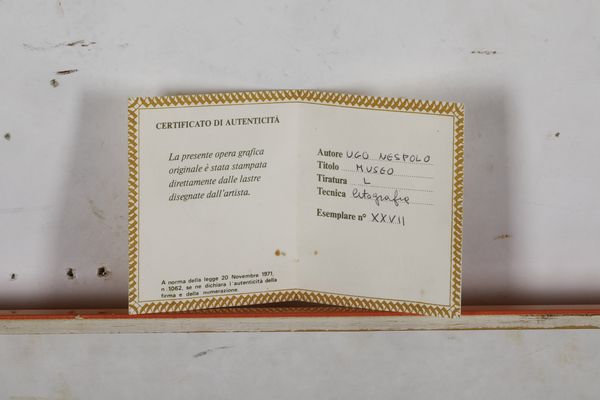 CERTIFICATO DI AUTENTICITÀ
La presente opera grafica
originale è stata stampata
direttamente dalle lastre
disegnate dall'artista.
A norma della legge 20 Novembre 1971,
n. 1062, se ne dichiara l'autenticità della
firma e della numerazione
Autore UGO NESPOLO
Titolo MUSEO
Tiratura L
Tecnica litografia
Esemplare n° XXVII